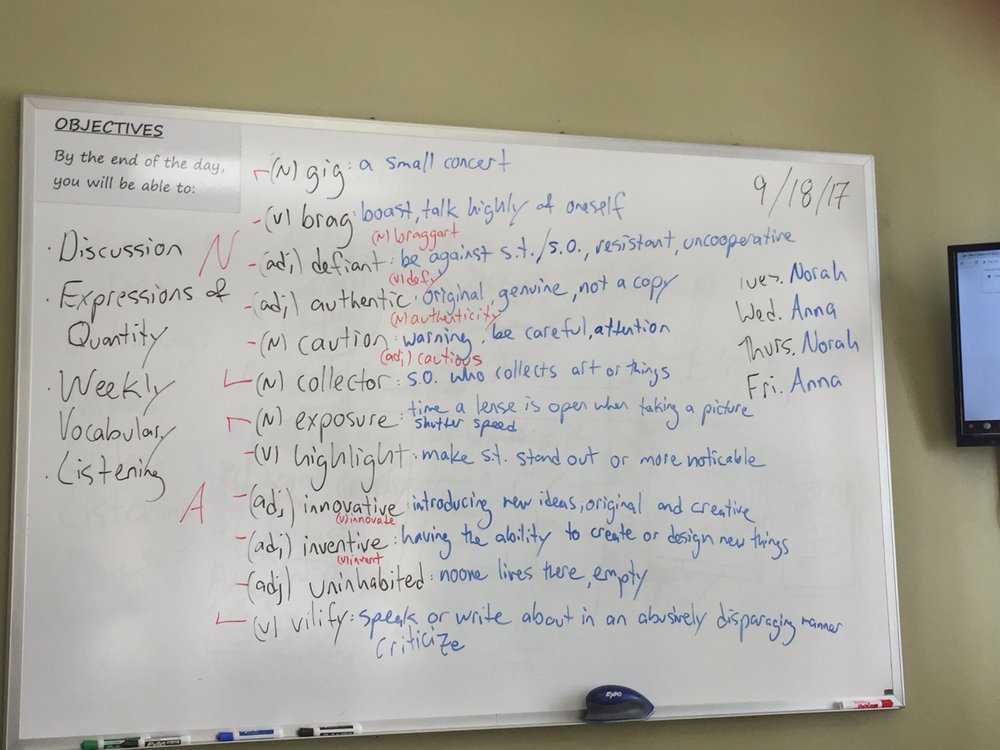 OBJECTIVES
By the end of the day,
you will be able to:
· Discussion
· Expressions of
Quantity
· Weekly
Vocabulary
· Listening
N
A
(N) gig: a small concert
(v) brag: boast, talk highly of oneself
(N) braggart
(adj) defiant: be against s.t./s.o., resistant, uncooperative
(v) defy
(adj) authentic: original, genuine, not a copy
(N) authenticity
(N) caution: warning, be careful, attention
(adj) cautious
(N) collector: s.o. who collects art or things
(N) exposure: time a lense is open when taking a picture
shutter speed
(v) highlight: make s.t. stand out or more noticable
(adj) innovative: introducing new ideas, original and creative
(v) innovate
(adj) inventive: having the ability to create or design new things
(v) invent
(adj) uninhabited: noone lives there, empty
(v) vilify: speak or write about in an abusively disparaging manner
criticize
9/18/17
Tues. Norah
Wed. Anna
Thurs. Norah
Fri. Anna
EXPO